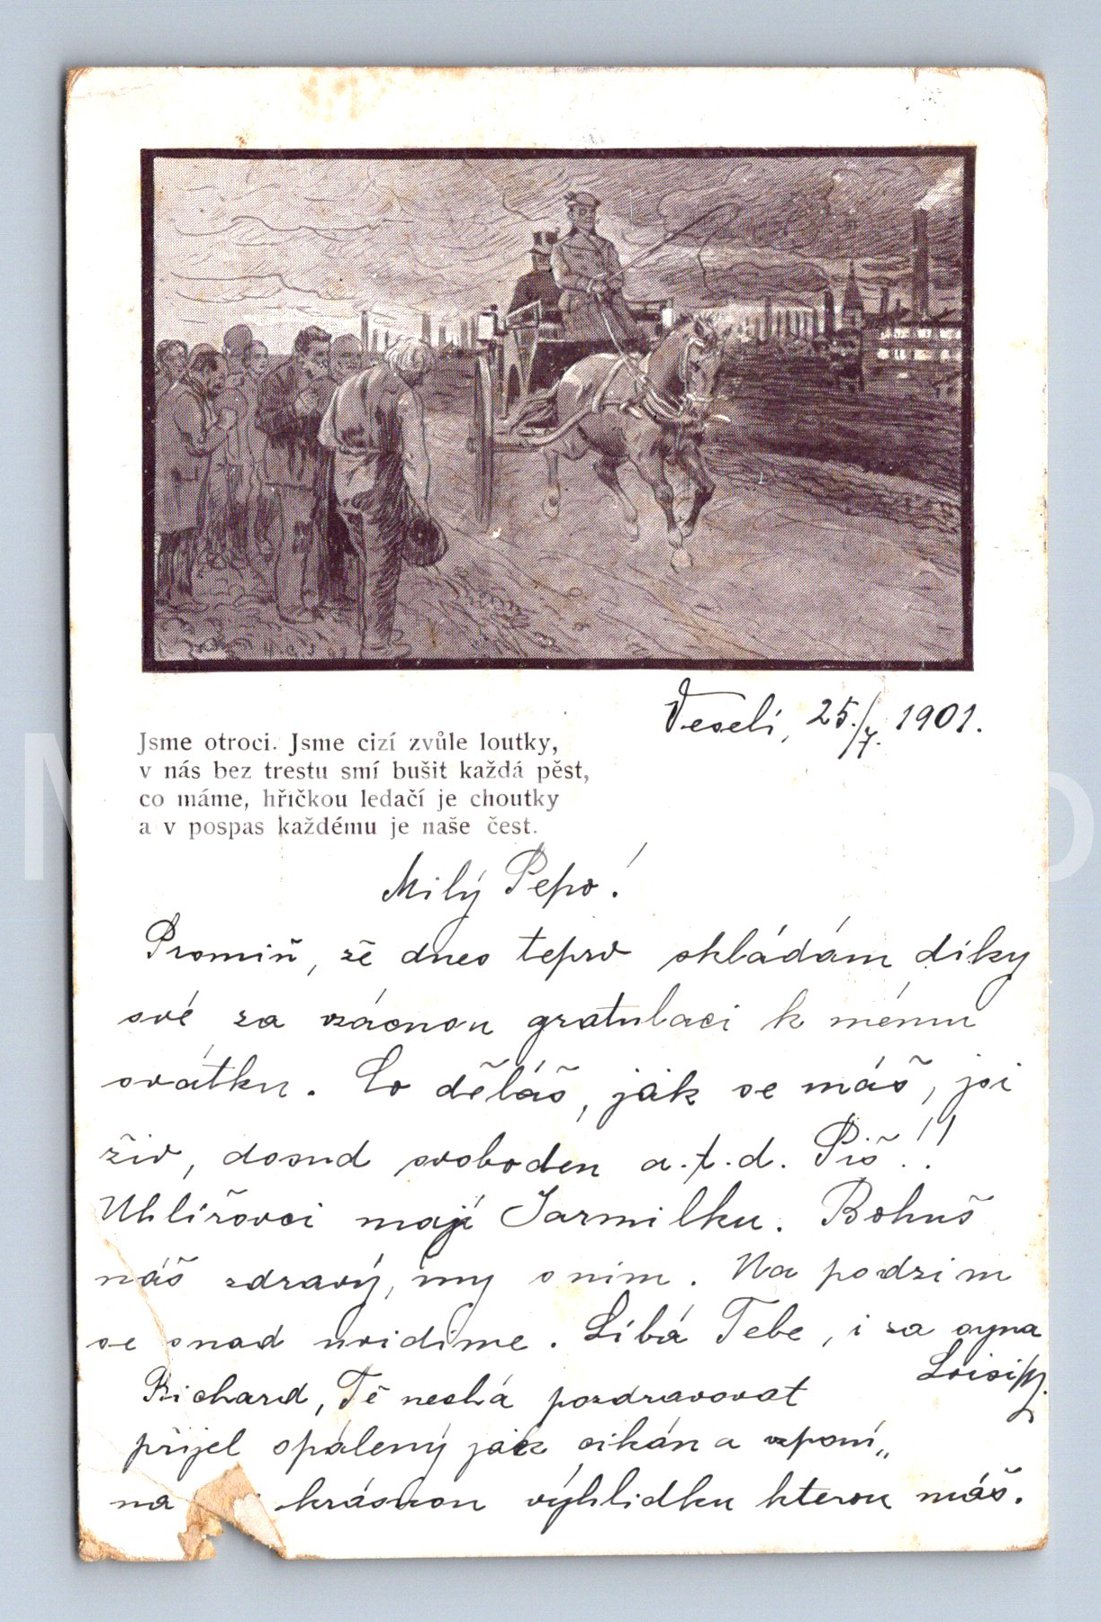 Veselí, 25./7. 1901.
Jsme otroci. Jsme cizí zvůle loutky,
v nás bez trestu smí bušit každá pěst,
co máme, hříčkou ledačí je choutky
a v pospas každému je naše čest.
Milý Pepo!
Promiň, že dnes teprv skládám díky
své za vzácnou gratulaci k mému
svátku. Co děláš, jak se máš, jsi
živ, dosud svoboden a.t.d. Piš!!
Uhlířovci mají Jarmilku. Bohuš
náš zdravý, my s ním. Na podzim
se snad uvidíme. Líbá Tebe, i za syna
Richard, Tě nechá pozdravovat
přijel opálený jak cikán a vzpomí„
na krásnou výhlídku kterou máš.